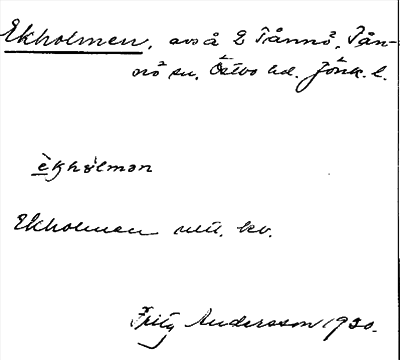 Ekholmen, avs å 2 Tånnö, Tån-
nö sn, Östbo hd. Jönk. l.
èkhòlmən
Ekholmen utt. kv.
Fritz Andersson 1930.